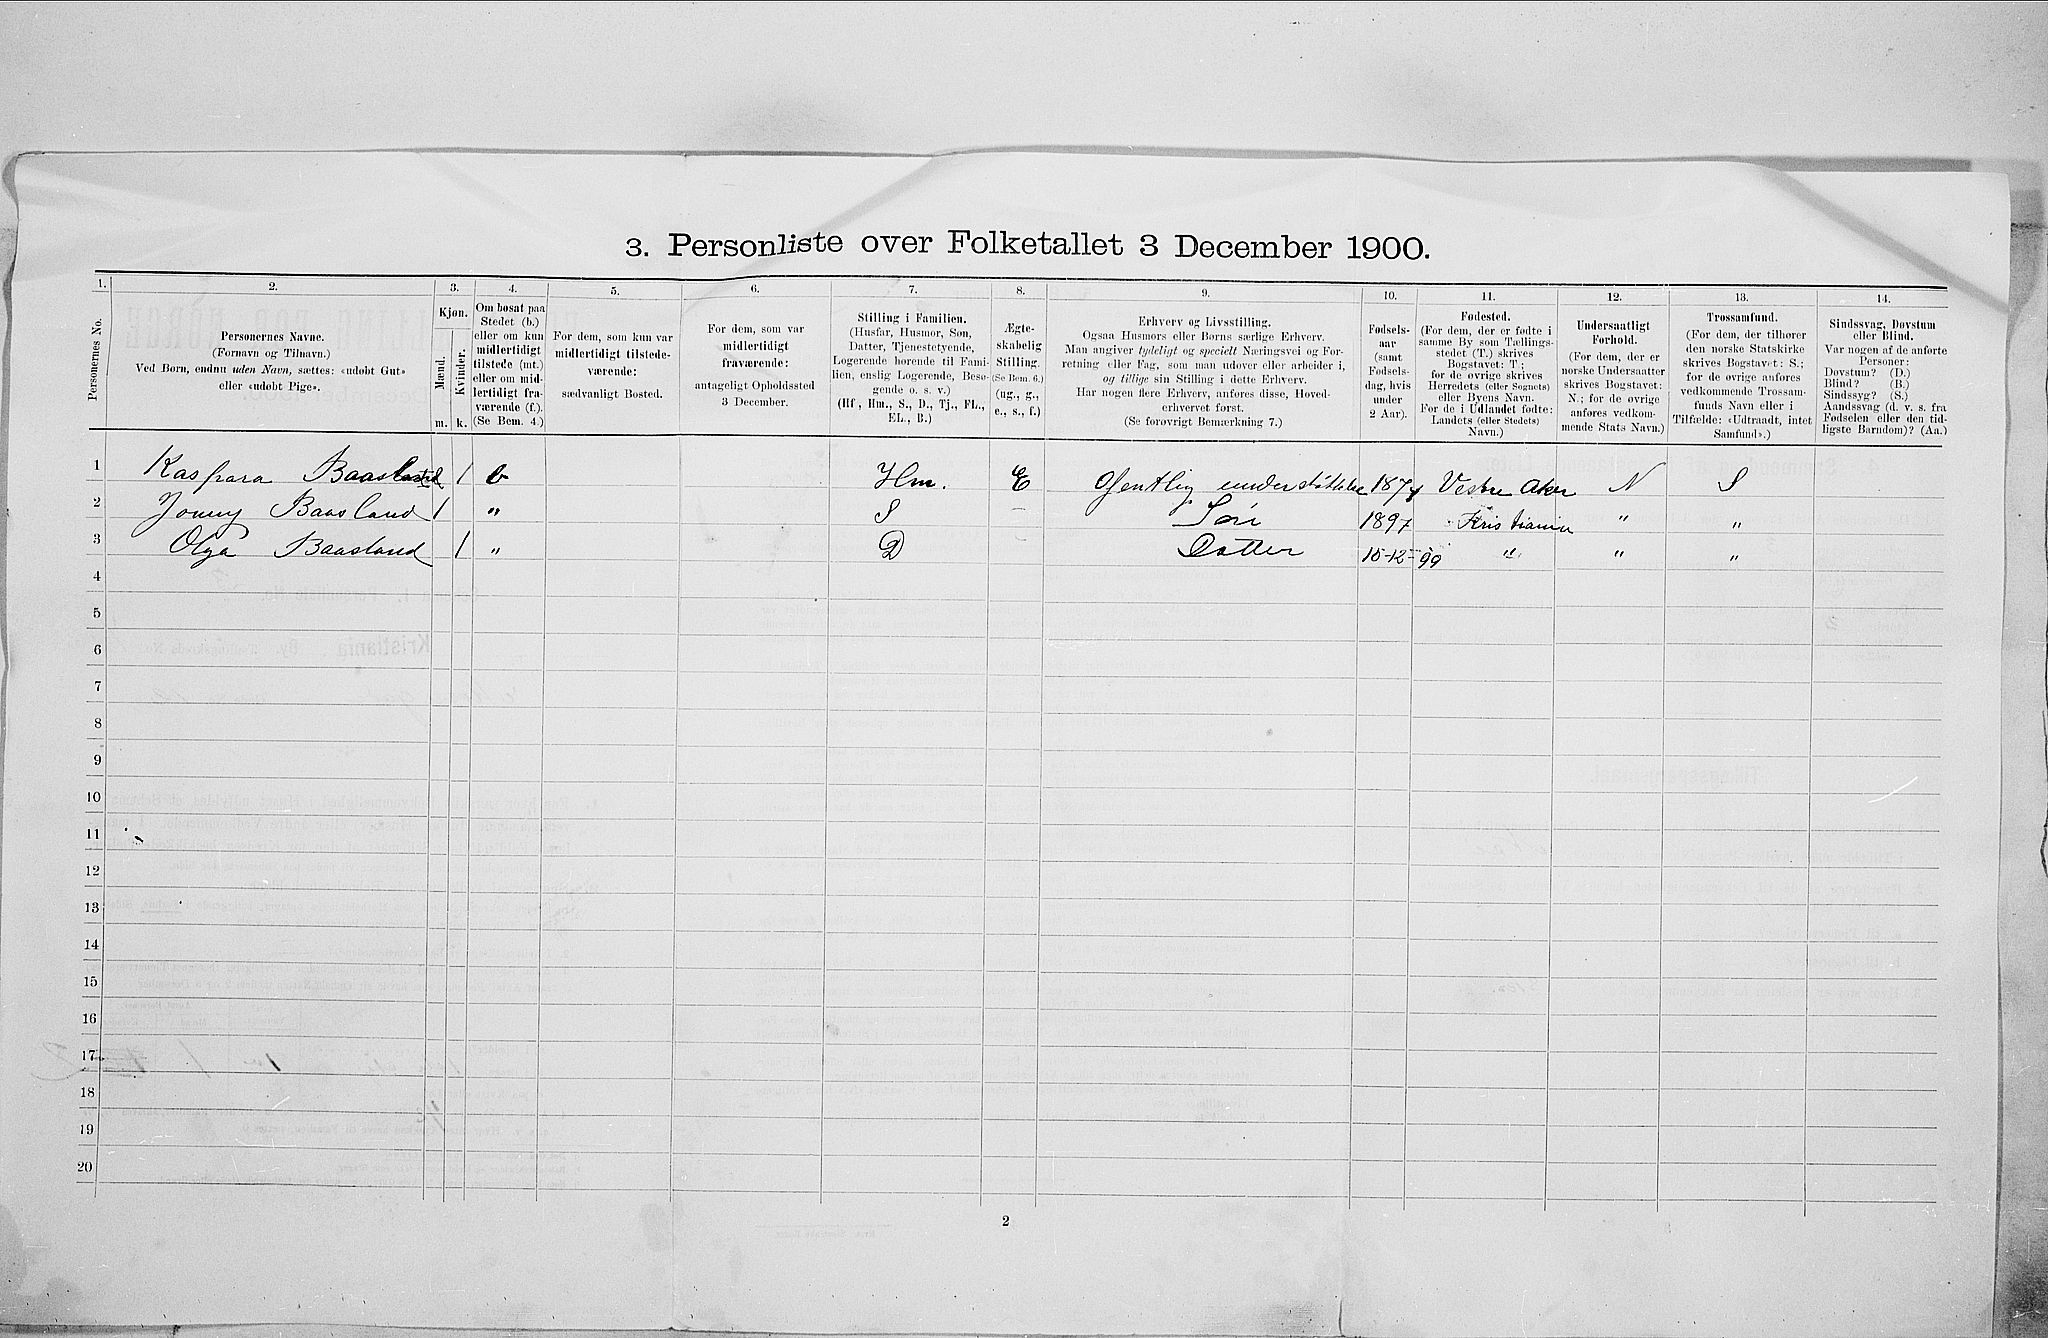 3. Personliste over Folketallet 3 December 1900.
1. 2. 3. 4. 5. 6. 7. 8. 9. 10. 11. 12. 13. 14.
Personernes No.
Personernes Navne.
(Fornavn og Tilnavn.)
Ved Børn, endnu uden Navn, sættes: «udøbt Gut»
eller «udøbt Pige».
Kjøn.
Mænd.
Kvinder.
m. k.
Om bosat paa
Stedet (b.)
eller om kun
midlertidigt
tilstede (mt.)
eller om mid-
lertidigt fra-
værende (f.).
(Se Bem. 4.)
For dem, som kun var
midlertidigt tilstede-
værende:
sædvanligt Bosted.
For dem, som var
midlertidigt
fraværende:
antageligt Opholdssted
3 December.
Stilling i Familien.
(Husfar, Husmor, Søn,
Datter, Tjenestetyende,
Logerende hørende til Fami-
lien, enslig Logerende, Besø-
gende o. s. v.)
(Hf, Hm., S., D., Tj., FL.,
EL., B.)
Ægte-
skabelig
Stilling.
(Se Bem. 6.)
(ug., g.,
e., s., f.)
Erhverv og Livsstilling.
Ogsaa Husmors eller Børns særlige Erhverv.
Man angiver tydeligt og specielt Næringsvei og For-
retning eller Fag, som man udover eller arbeider i,
og tillige sin Stilling i dette Erhverv.
Har nogen flere Erhverv, anføres disse, Hoved-
erhvervet først.
(Se forøvrigt Bemærkning 7.)
Fødsels-
aar
(samt
Fødsels-
dag, hvis
under
2 Aar).
Fødested.
(For dem, der er fødte i
samme By som Tællings-
stedet (T.) skrives
Bogstavet: T;
for de øvrige skrives
Herredets (eller Sognets)
eller Byens Navn.
For de i Udlandet fødte:
Landets (eller Stedets)
Navn.)
Undersaatligt
Forhold.
(For dem, der er
norske Undersaatter
skrives Bogstavet:
N.; for de øvrige
anføres vedkom-
mende Stats Navn.)
Trossamfund.
(For dem, der tilhører
den norske Statskirke
skrives Bogstavet: S.;
for de øvrige anføres
vedkommende Trossam-
funds Navn eller i
Tilfælde: «Udtraadt, intet
Samfund».)
Sindssvag, Døvstum
eller Blind.
Var nogen af de anførte
Personer:
Døvstum? (D.)
Blind? (B.)
Sindssyg? (S.)
Aandssvag (d. v. s. fra
Fødselen eller den tid-
ligste Barndom)? (Aa.)
1 Kaspara Baasland 1 b Hm. E Ofentlig understøttelse 1874 Vestre Aker N S
2 Jonny Baasland 1 " S – Søn 1897 Kristiania " "
3 Olga Baasland 1 " D – Datter 15-12-99 " " "
4
5
6
7
8
9
10
11
12
13
14
15
16
17
18
19
20
2